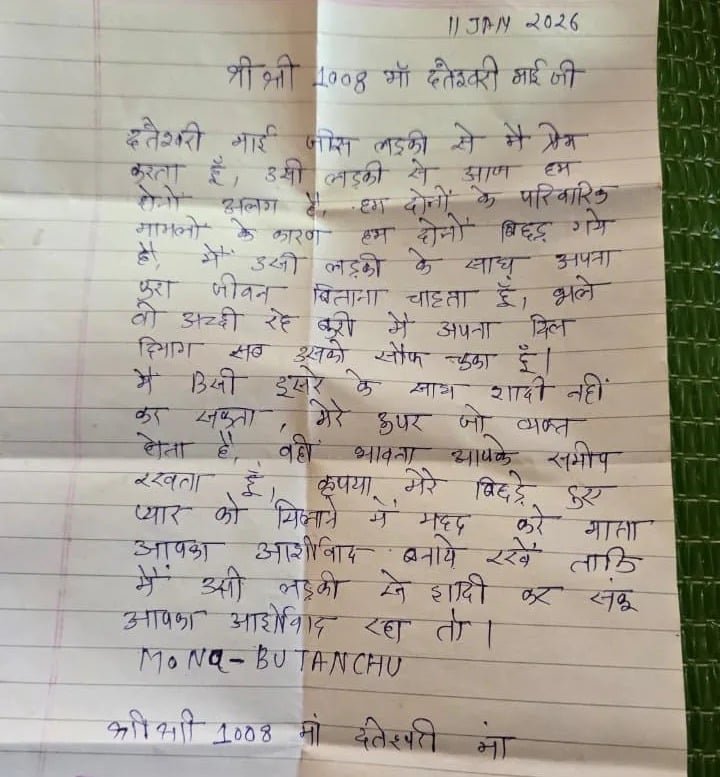 11 JAN 2026
श्री श्री 1008 माँ दंतेश्वरी माई जी
दंतेश्वरी माई जीस लड़की से मै प्रेम
करता हूँ, उसी लड़की से आज हम
दोनों अलग है, हम दोनों के परिवारिक
मामलो के कारण हम दोनों बिछड़ गये
है, मैं उसी लड़की के साथ अपना
पुरा जीवन बिताना चाहता हूँ, भले
वो अच्छी रहे बुरी मै अपना दिल
दिमाग सब उसको सौफ चुका हूँ।
मै किसी दुसरे के साथ शादी नहीं
कर सकता, मेरे ऊपर जो व्यक्त
होता है, वहीं भावना आपके समीप
रखता हूँ, कृपया मेरे बिछड़े हुए
प्यार को मिलाने में मदद करे माता
आपका आर्शीवाद बनाये रखें ताकि
मैं उसी लड़की से शादी कर संकू
आपका आर्शीवाद रहा तो।
MONA-BUTANCHU
श्री श्री 1008 मां दंतेश्वरी मां